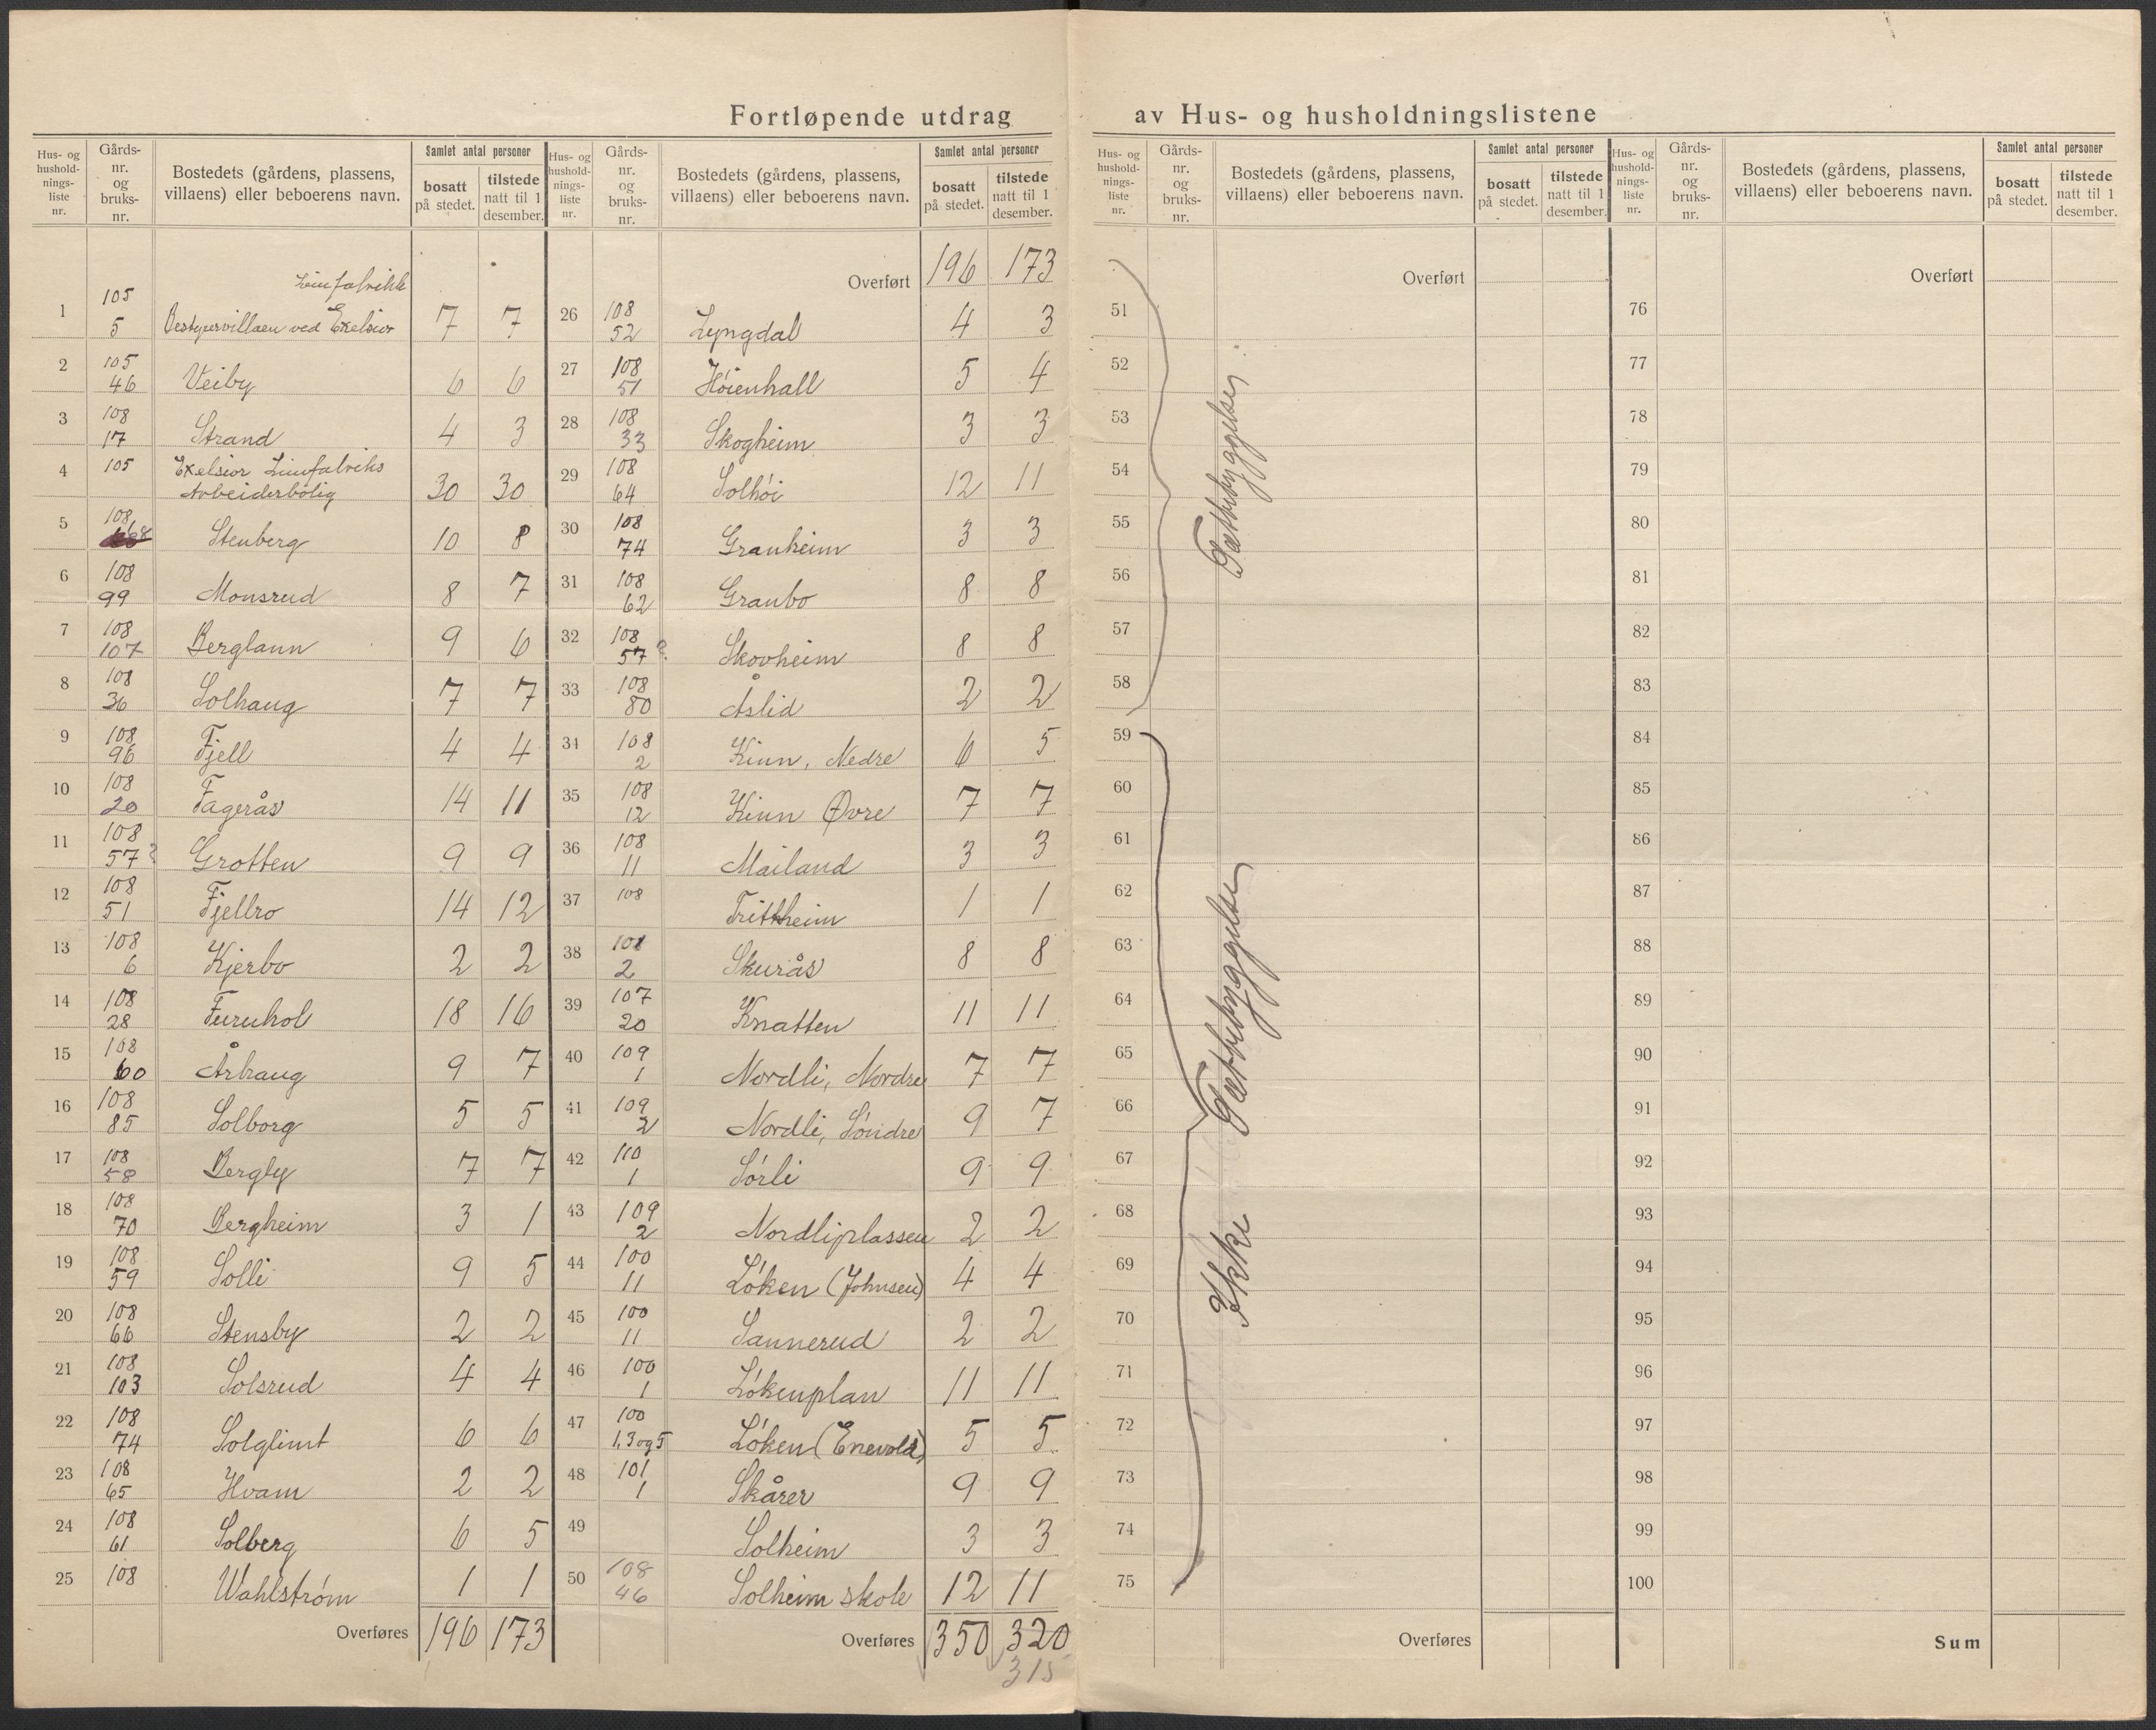 Fortløpende utdrag av Hus- og husholdningslistene
Hus- og hushold-nings-liste nr. | Gårds-nr. og bruks-nr. | Bostedets (gårdens, plassens, villaens) eller beboerens navn. | Samlet antal personer | bosatt på stedet. | tilstede natt til 1 desember.
1 | 105 5 | Bestyrervillaen ved Exelsior Limfabrikk | 7 | 7
2 | 105 46 | Veiby | 6 | 6
3 | 108 17 | Strand | 4 | 3
4 | 105 | Exelsior Limfabriks Arbeiderbolig | 30 | 30
5 | 108 68 | Stenberg | 10 | 8
6 | 108 99 | Monsrud | 8 | 7
7 | 108 107 | Berglann | 9 | 6
8 | 108 36 | Solhaug | 7 | 7
9 | 108 96 | Fjell | 4 | 4
10 | 108 20 | Fagerås | 14 | 11
11 | 108 57? | Grotten | 9 | 9
12 | 108 51 | Fjellro | 14 | 12
13 | 108 6 | Kjerbo | 2 | 2
14 | 108 28 | Furuhol | 18 | 16
15 | 108 60 | Århaug | 9 | 7
16 | 108 85 | Solborg | 5 | 5
17 | 108 58 | Bergly | 7 | 7
18 | 108 70 | Bergheim | 3 | 1
19 | 108 59 | Solli | 9 | 5
20 | 108 66 | Stensby | 2 | 2
21 | 108 103 | Solsrud | 4 | 4
22 | 108 74 | Solglimt | 6 | 6
23 | 108 65 | Hvam | 2 | 2
24 | 108 61 | Solberg | 6 | 5
25 | 108 | Wahlstrøm | 1 | 1
Overføres | 196 | 173
Hus- og hushold-nings-liste nr. | Gårds-nr. og bruks-nr. | Bostedets (gårdens, plassens, villaens) eller beboerens navn. | Samlet antal personer | bosatt på stedet. | tilstede natt til 1 desember.
Overført | 196 | 173
26 | 108 52 | Lyngdal | 4 | 3
27 | 108 51 | Høienhall | 5 | 4
28 | 108 33 | Skogheim | 3 | 3
29 | 108 64 | Solhøi | 12 | 11
30 | 108 74 | Granheim | 3 | 3
31 | 108 62 | Granbo | 8 | 8
32 | 108 57? | Skovheim | 8 | 8
33 | 108 80 | Åslid | 2 | 2
34 | 108 2 | Kinn, Nedre | 6 | 5
35 | 108 12 | Kinn Øvre | 7 | 7
36 | 108 11 | Mailand | 3 | 3
37 | 108 | Trittheim | 1 | 1
38 | 108 2 | Skurås | 8 | 8
39 | 107 20 | Knatten | 11 | 11
40 | 109 1 | Nordli, Nordre | 7 | 7
41 | 109 2 | Nordli, Søndre | 9 | 7
42 | 110 1 | Sørli | 9 | 9
43 | 109 2 | Nordliplassen | 2 | 2
44 | 100 11 | Løken (Johnsen) | 4 | 4
45 | 100 11 | Sannerud | 2 | 2
46 | 100 1 | Løkenplan | 11 | 11
47 | 100 1,3 og 5 | Løken (Enevold) | 5 | 5
48 | 101 1 | Skårer | 9 | 9
49 | Solheim | 3 | 3
50 | 108 46 | Solheim skole | 12 | 11
Overføres | 350 | 320
315
Hus- og hushold-nings-liste nr. | Gårds-nr. og bruks-nr. | Bostedets (gårdens, plassens, villaens) eller beboerens navn. | Samlet antal personer | bosatt på stedet. | tilstede natt til 1 desember.
Overført
51
52
53
54
55
56
57
58
Tættebyggelse
59
60
61
62
63
64
65
66
67
68
69
70
71
72
73
74
75
Ikke Tættebyggelse
Overføres
Hus- og hushold-nings-liste nr. | Gårds-nr. og bruks-nr. | Bostedets (gårdens, plassens, villaens) eller beboerens navn. | Samlet antal personer | bosatt på stedet. | tilstede natt til 1 desember.
Overført
76
77
78
79
80
81
82
83
84
85
86
87
88
89
90
91
92
93
94
95
96
97
98
99
100
Sum